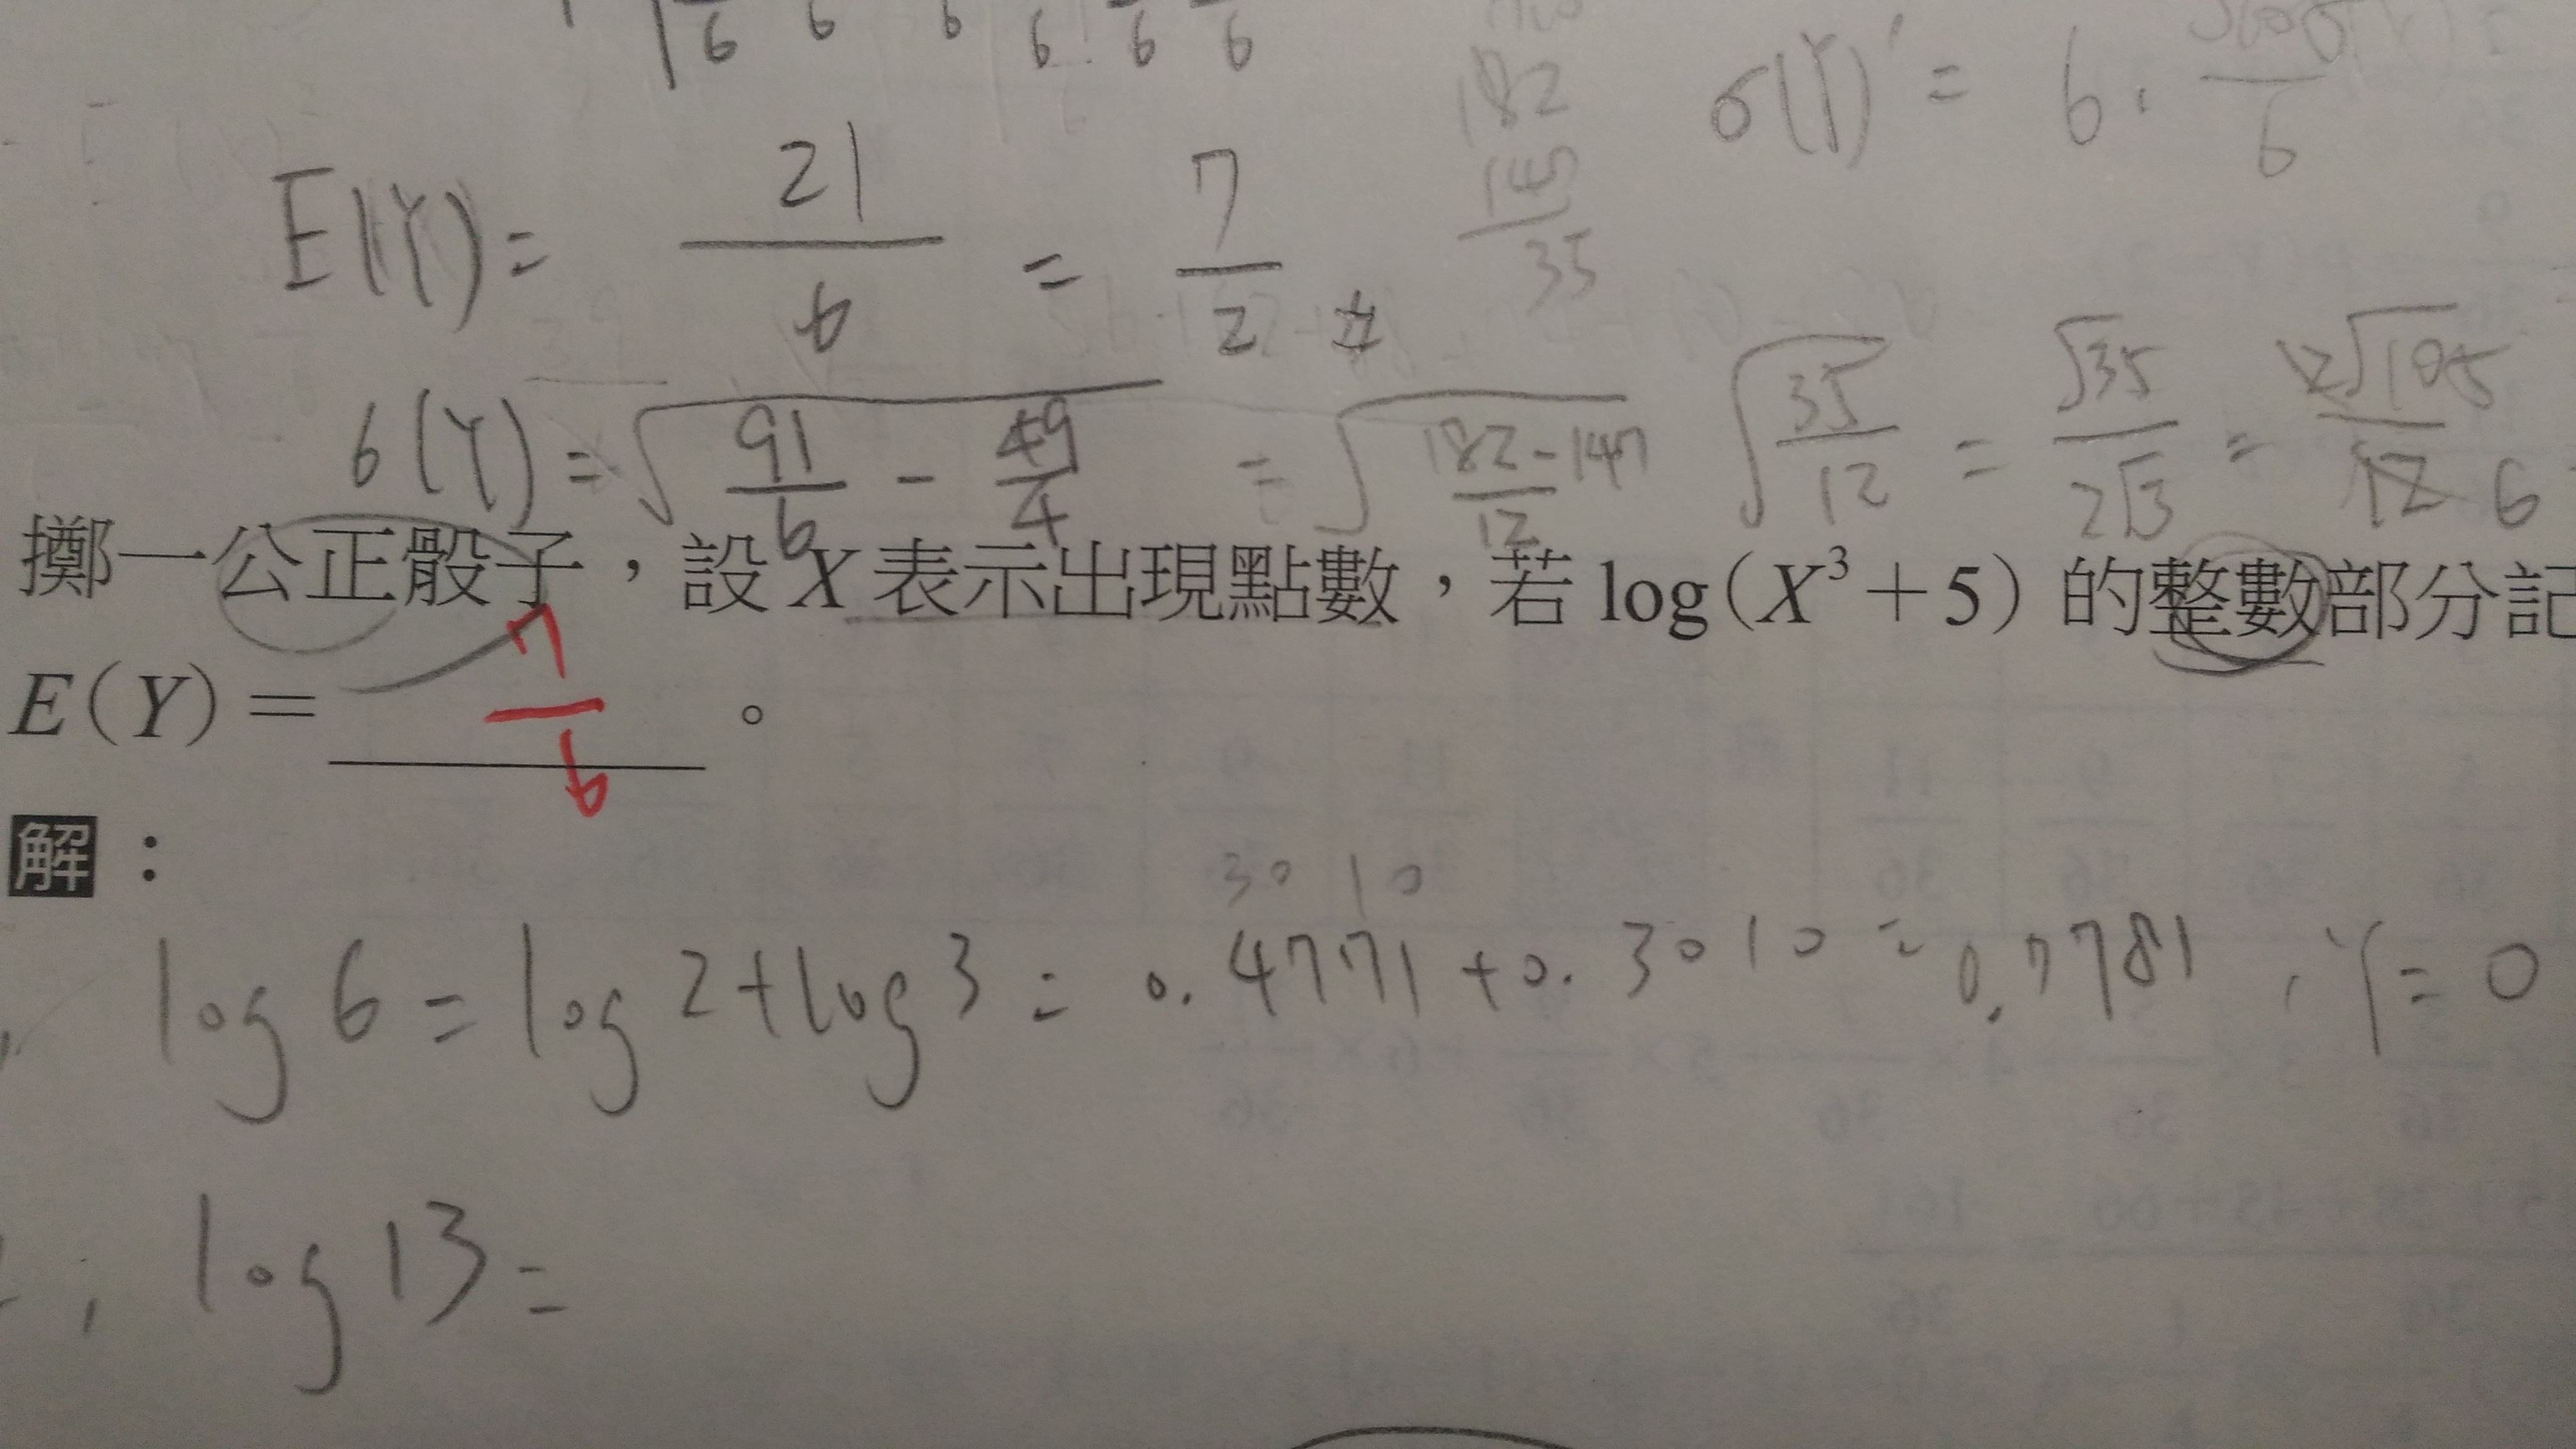 6 6 6 6 6 6
σ(Y)' = 6 ·
6
E(Y) = 21/6 = 7/2 #
182
147
35
6(Y) = √(91/6 - 49/4) = √((182-147)/12) √(35/12) = √35/2√3 = 2√105/12 6
擲一公正骰子，設 X 表示出現點數，若 log(X³+5) 的整數部分記
E(Y) = 7/6 。
解：
30 10
log 6 = log 2 + log 3 = 0.4771 + 0.3010 = 0.7781 , Y = 0
, log 13 =